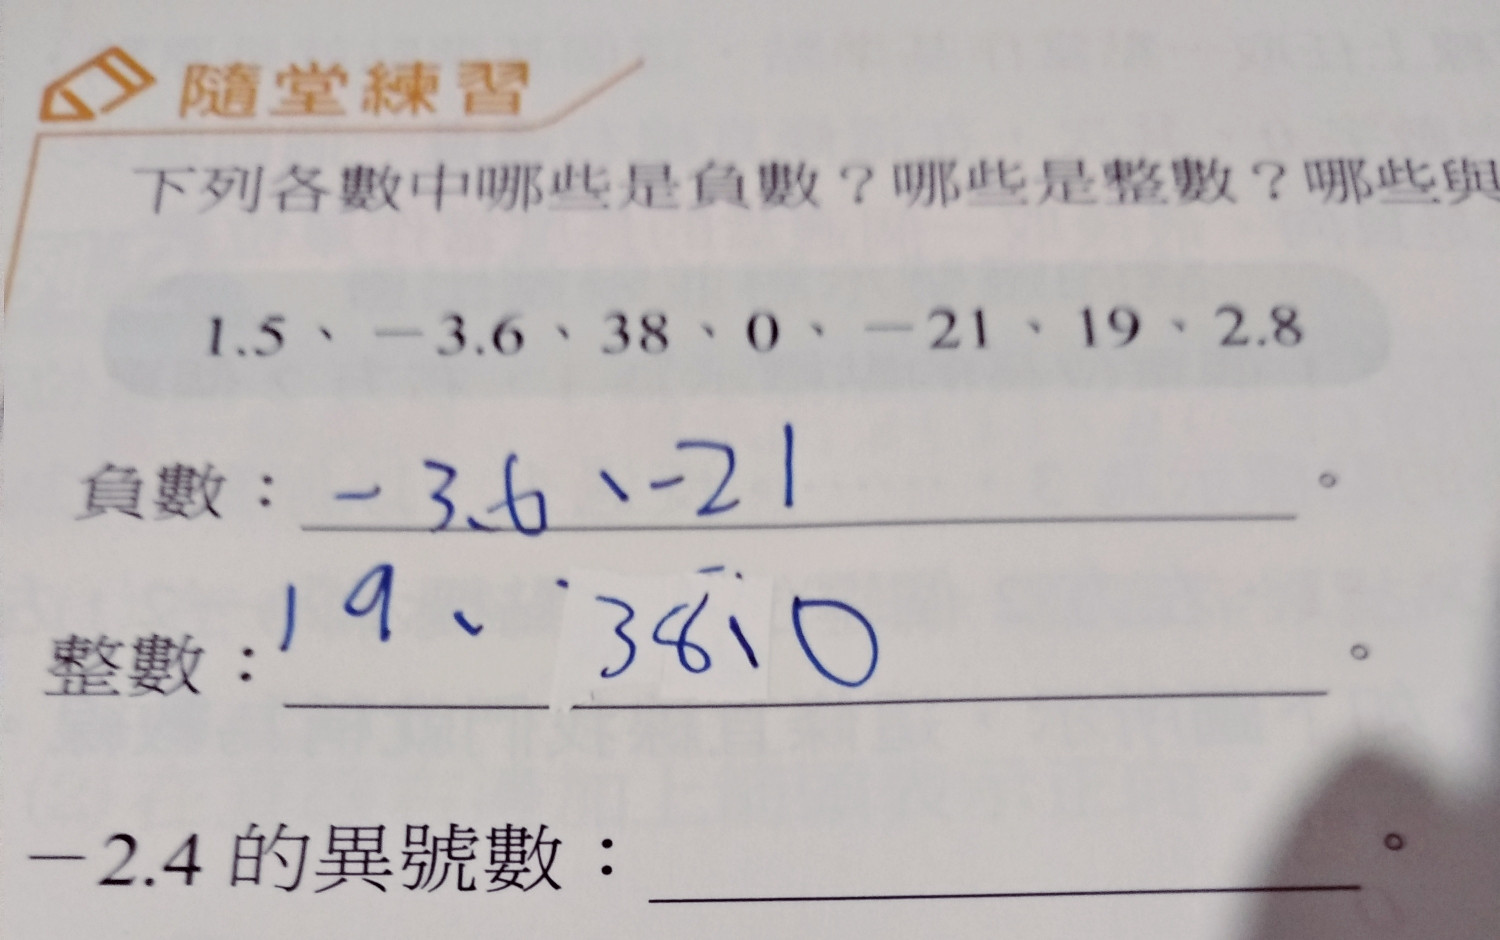 隨堂練習
下列各數中哪些是負數？哪些是整數？哪些與
1.5、－3.6、38、0、－21、19、2.8
負數：－3.6、－21。
整數：19、38、0。
－2.4 的異號數：。